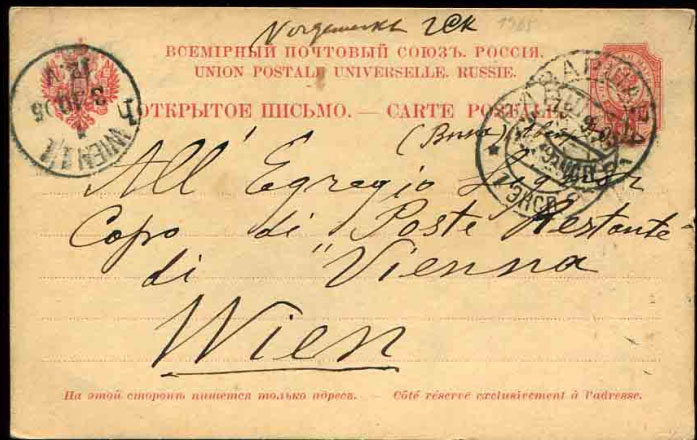 Vorgemerkt
1905
ВСЕМІРНЫЙ ПОЧТОВЫЙ СОЮЗЪ. РОССІЯ.
UNION POSTALE UNIVERSELLE. RUSSIE.
ОТКРЫТОЕ ПИСЬМО. — CARTE POSTALE
WIEN 1/1
ВАРШАВА
1 ЭКСП.
All' Egregio Signor
Capo di Poste Restante
di "Vienna
Wien
На этой сторонѣ пишется только адресъ. — Côté réservé exclusivement à l'adresse.